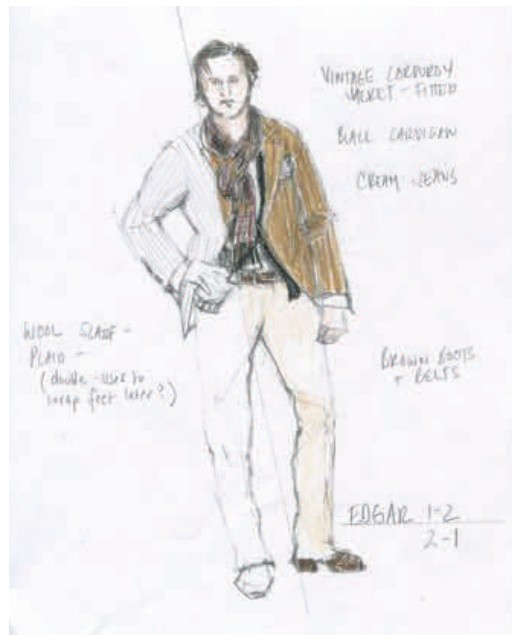 VINTAGE CORDUROY
JACKET - FITTED
BLACK CARDIGAN
CREAM JEANS
WOOL SCARF -
PLAID -
(double-use to
wrap feet later?)
BROWN BOOTS
+ BELTS
EDGAR 1-2
2-1